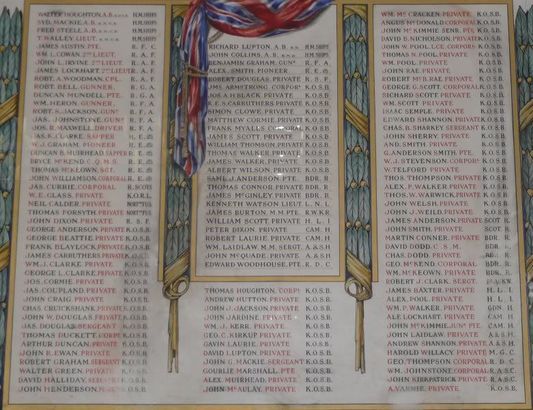 WALTER HOUGHTON, A.B. H.M. SHIPS
SYD. MACKIE, A.B. H.M. SHIPS
FRED STEELE, A.B. H.M. SHIPS
T. RAILEY LIEUT. H.M. SHIPS
JAMES AUSTIN PTE. R. F. C.
WM. J. COWAN 2ND LIEUT. R. A. F.
JOHN L. IRVINE 2ND LIEUT. R. A. F.
JAMES LOCKHART 2ND LIEUT. R. A. F.
ROBT. A. WOODMAN CPL. R. A. F.
ROBT. BELL. GUNNER. R. G. A.
DUNCAN MUNDELL, PTE. R. G. A.
WM. HERON, GUNNER. R. F. A.
ROBT. S. JACKSON, GUNR. R. F. A.
JAS. JOHNSTONE GUNR R. F. A.
JOS. R. MAXWELL DRIVER R. F. A.
JAS. K. CLARKE, SAPPER R. E.
W. J. GRAHAM, PIONEER R. E.
DUNCAN B. MUIRHEAD SAPPER R. E.
BRYCE McKEND C.Q.M.S. R. E.
THOS. McKLOWN, SGT. R. E.
JOHN WILLIAMSON, CORPORAL R. E.
JAS. CURRIE, CORPORAL R. SCOTS
W. E. GLASS, PRIVATE K.O.R.L.
NEIL CALDER, PRIVATE
THOMAS FORSYTH, PRIVATE
JOHN DIXON, PRIVATE R. S. F.
GEORGE ANDERSON, PRIVATE K.O.S.B.
GEORGE BEATTIE, PRIVATE K.O.S.B.
FRANK BLAYLOCK, PRIVATE K.O.S.B.
JAMES CARRUTHERS PRIVATE K.O.S.B.
WM. J. CLARKE, PRIVATE K.O.S.B.
GEORGE L. CLARKE, PRIVATE K.O.S.B.
JOS. CORMIE, PRIVATE K.O.S.B.
JAS. COUPLAND PRIVATE K.O.S.B.
JOHN CRAIG PRIVATE K.O.S.B.
CHAS. CRUICKSHANK PRIVATE K.O.S.B.
JOHN W. DOUGLAS PRIVATE K.O.S.B.
JAS. DOUGLAS SERGEANT K.O.S.B.
THOMAS DUCKETT CORPL K.O.S.B.
ARTHUR DUNCAN, PRIVATE K.O.S.B.
JOHN R. EWAN, PRIVATE K.O.S.B.
ROBERT GRAHAM, SERGEANT K.O.S.B.
WALTER GREEN, PRIVATE K.O.S.B.
DAVID HALLIDAY, SERGEANT K.O.S.B.
JOHN HENDERSON, K.O.S.B.
RICHARD LUPTON A.B. H.M. SHIPS
JOHN COLLINS, A.B. H.M. SHIPS
BENJAMIN GRAHAM, GUNR R. F. A.
ALEX. SMITH PIONEER R. E.
ROBERT DOUGLAS, PRIVATE R. S. F.
JMS ARMSTRONG CORPORL K.O.S.B.
JOS. A. H. BLACK PRIVATE K.O.S.B.
R. E. S. CARRUTHERS PRIVATE K.O.S.B.
SIMON CLOWE, PRIVATE K.O.S.B.
MATTHEW CORMIE, PRIVATE K.O.S.B.
FRANK MYALLS CORPORAL K.O.S.B.
JAMES SCOTT, PRIVATE K.O.S.B.
WILLIAM THOMSON, PRIVATE K.O.S.B.
THOMAS WALKER PRIVATE K.O.S.B.
JAMES WALKER, PRIVATE K.O.S.B.
ALBERT WILSON, PRIVATE K.O.S.B.
SAML J. ANDERSON, PTE. BDR. R.
THOMAS CONNOR PRIVATE BDR. R.
JAMES McGINLEY PRIVATE BDR. R.
KENNETH WATSON LIEUT. L. N. L.
JAMES BURTON, M.M. PTE. R.W.K.R.
WILLIAM SCOTT PRIVATE H. L. I.
PETER DIXON, PRIVATE CAM. H.
ROBERT LAURIE, PRIVATE CAM. H.
WM. LAIDLAW M.M. SERGT. A. & S.H.
JOHN McQUADE, PRIVATE A. & S.H.
EDWARD WOODHOUSE, PTE. R. D. C.
THOMAS HOUGHTON, CORPL K.O.S.B.
ANDREW HUTTON, PRIVATE K.O.S.B.
JOHN J. JACKSON PRIVATE K.O.S.B.
JOHN JARDINE, PRIVATE K.O.S.B.
WM. J. KERR, PRIVATE K.O.S.B.
GEO. C. KIRKUP PRIVATE K.O.S.B.
GAVIN LAURIE, PRIVATE K.O.S.B.
DAVID LUPTON, PRIVATE K.O.S.B.
JOHN G. MACKIE, SERGEANT K.O.S.B.
GOURLIE MARSHALL, PTE. K.O.S.B.
ALEX. MUIRHEAD, PRIVATE K.O.S.B.
JOHN McAULAY, PRIVATE K.O.S.B.
WM. McCRACKEN, PRIVATE K.O.S.B.
ANGUS McDONALD, CORPORAL K.O.S.B.
JOHN McKIMMIE SENR. PTE. K.O.S.B.
DAVID E. NICHOLSON, PRIVATE K.O.S.B.
JOHN W. POOL, LCE CORPORL K.O.S.B.
THOMAS N. POOL, PRIVATE K.O.S.B.
WM. POOL, PRIVATE K.O.S.B.
JOHN RAE, PRIVATE K.O.S.B.
ROBERT McB. RAE, PRIVATE K.O.S.B.
GEORGE G. SCOTT, CORPORAL K.O.S.B.
RICHARD SCOTT, PRIVATE K.O.S.B.
WM. SCOTT, PRIVATE K.O.S.B.
ISAAC SEMPLE, PRIVATE K.O.S.B.
EDWARD SHANNON, PRIVATE K.O.S.B.
CHAS. B. SHARKEY SERGEANT K.O.S.B.
JOHN SHERRY, PRIVATE K.O.S.B.
AND. SMITH, PRIVATE K.O.S.B.
G. ANDERSON SMITH, PTE. K.O.S.B.
W. J. STEVENSON, CORPORL K.O.S.B.
W. TELFORD, PRIVATE K.O.S.B.
THOS. THOMPSON, PRIVATE K.O.S.B.
ALEX. F. WALKER, PRIVATE K.O.S.B.
THOS. W. WARWICK, PRIVATE K.O.S.B.
JOHN WELSH, PRIVATE K.O.S.B.
JOHN J. WEILD, PRIVATE K.O.S.B.
JAMES ANDERSON, PRIVATE SCOT R.
JOHN SMITH, PRIVATE SCOT
MARTIN CONNER, PRIVATE BDR. R.
DAVID DODD, C. S. M. BDR.
CHAS. DODD, PRIVATE BDR. R.
GEO. McKEND, CORPORAL BDR. R.
WM. McKEOWN, PRIVATE BDR. R.
ROBERT J. CLARK, SERGT.
JAMES BAXTER, PRIVATE H. L. I.
ALEX. POOL, PRIVATE H. L. I.
WM. P. WALKER, PRIVATE GON H.
ALE LOCKHART, PRIVATE CAM. H.
JOHN McKIMMIE, JUNR PTE. CAM. H.
JOHN LAIDLAW, PRIVATE A. & S.H.
ANDREW SHANNON, PRIVATE A. & S.H.
HAROLD WILLACY, PRIVATE M. G. C.
GEO. THOMPSON, CORPORAL R. D. C.
WM. JOHNSTONE, CORPORAL R.A.S.C.
JOHN KIRKPATRICK, PRIVATE R.A.S.C.
A. VARNIE, PRIVATE K.O.S.B.